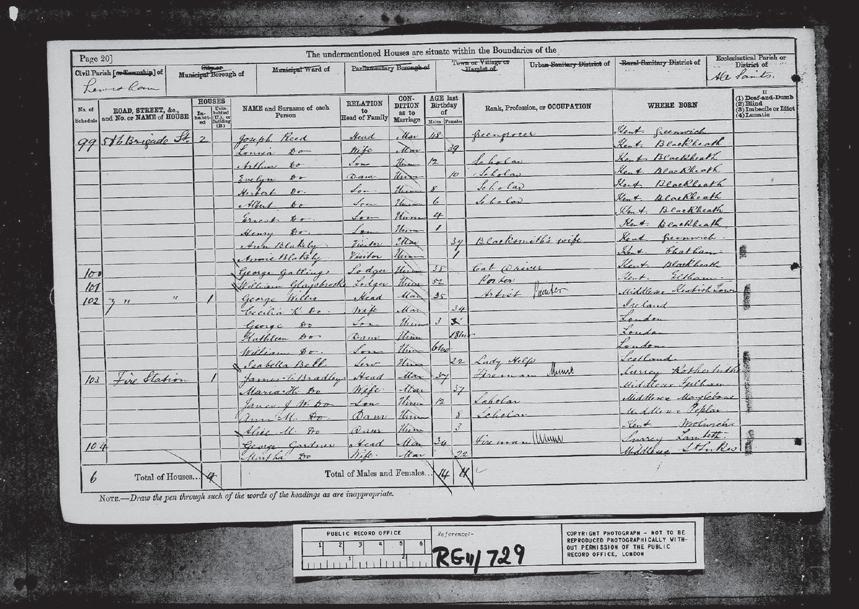 Page 20]
The undermentioned Houses are situate within the Boundaries of the
Civil Parish [or Township] of
City or Municipal Borough of
Municipal Ward of
Parliamentary Borough of
Town or Village or Hamlet of
Urban Sanitary District of
Rural Sanitary District of
Ecclesiastical Parish or District of
Lewisham
All Saints
No. of Schedule
ROAD, STREET, &c., and No. or NAME of HOUSE
HOUSES
In-habit-ed
Unin-habited (U.), or Building (B.)
NAME and Surname of each Person
RELATION to Head of Family
CON-DITION as to Marriage
AGE last Birthday of
Males
Females
Rank, Profession, or OCCUPATION
WHERE BORN
If
(1) Deaf-and-Dumb
(2) Blind
(3) Imbecile or Idiot
(4) Lunatic
99 5 & 6 Brigade St. 2 Joseph Reed Head Mar 48 Greengrocer Kent Greenwich
Louisa Do Wife Mar 39 Kent Blackheath
Arthur Do Son Unm 12 Scholar Kent Blackheath
Evelyn Do Daur Unm 10 Scholar Kent Blackheath
Herbert Do Son Unm 8 Scholar Kent Blackheath
Albert Do Son Unm 6 Scholar Kent Blackheath
Ernest Do Son Unm 4 Kent Blackheath
Henry Do Son Unm 1 Kent Blackheath
Ann Blakely Visitor Mar Blacksmith's wife Kent Greenwich
Annie Blakely Visitor Unm 1 Kent Chatham
100 George Lodger Unm 38 Cab Driver Kent Blackheath
101 William Lodger Unm 52 Porter Kent Eltham
102 7 " " 1 George Head Mar 35 Artist Painter Middlesex Kentish Town
Cecilia Do Wife Mar 34 Ireland
George Do Son Unm 3 London
Kathleen Do Daur Unm London
William Do Son Unm London
Isabella Bell Serv Unm 22 Lady Help Scotland
103 Fire Station 1 James Bradley Head Mar 37 Fireman Surrey Rotherhithe
Maria H. Do Wife Mar 37 Middlesex Fulham
James J W Do Son Unm 12 Scholar Middlesex Marylebone
Ann M. Do Daur Unm 8 Scholar Middlesex Poplar
Alice M. Do Daur Unm 3 Kent Woolwich
104 George Gardner Head Mar 34 Fireman Surrey Lambeth
Martha Do Wife Mar 22 Middlesex St Lukes
6 Total of Houses... 4
Total of Males and Females... 14 11
NOTE.—Draw the pen through such of the words of the headings as are inappropriate.
PUBLIC RECORD OFFICE
1 2 3 4 5 6
1 2
Reference:-
RG 11/729
COPYRIGHT PHOTOGRAPH - NOT TO BE
REPRODUCED PHOTOGRAPHICALLY WITH-
OUT PERMISSION OF THE PUBLIC
RECORD OFFICE, LONDON